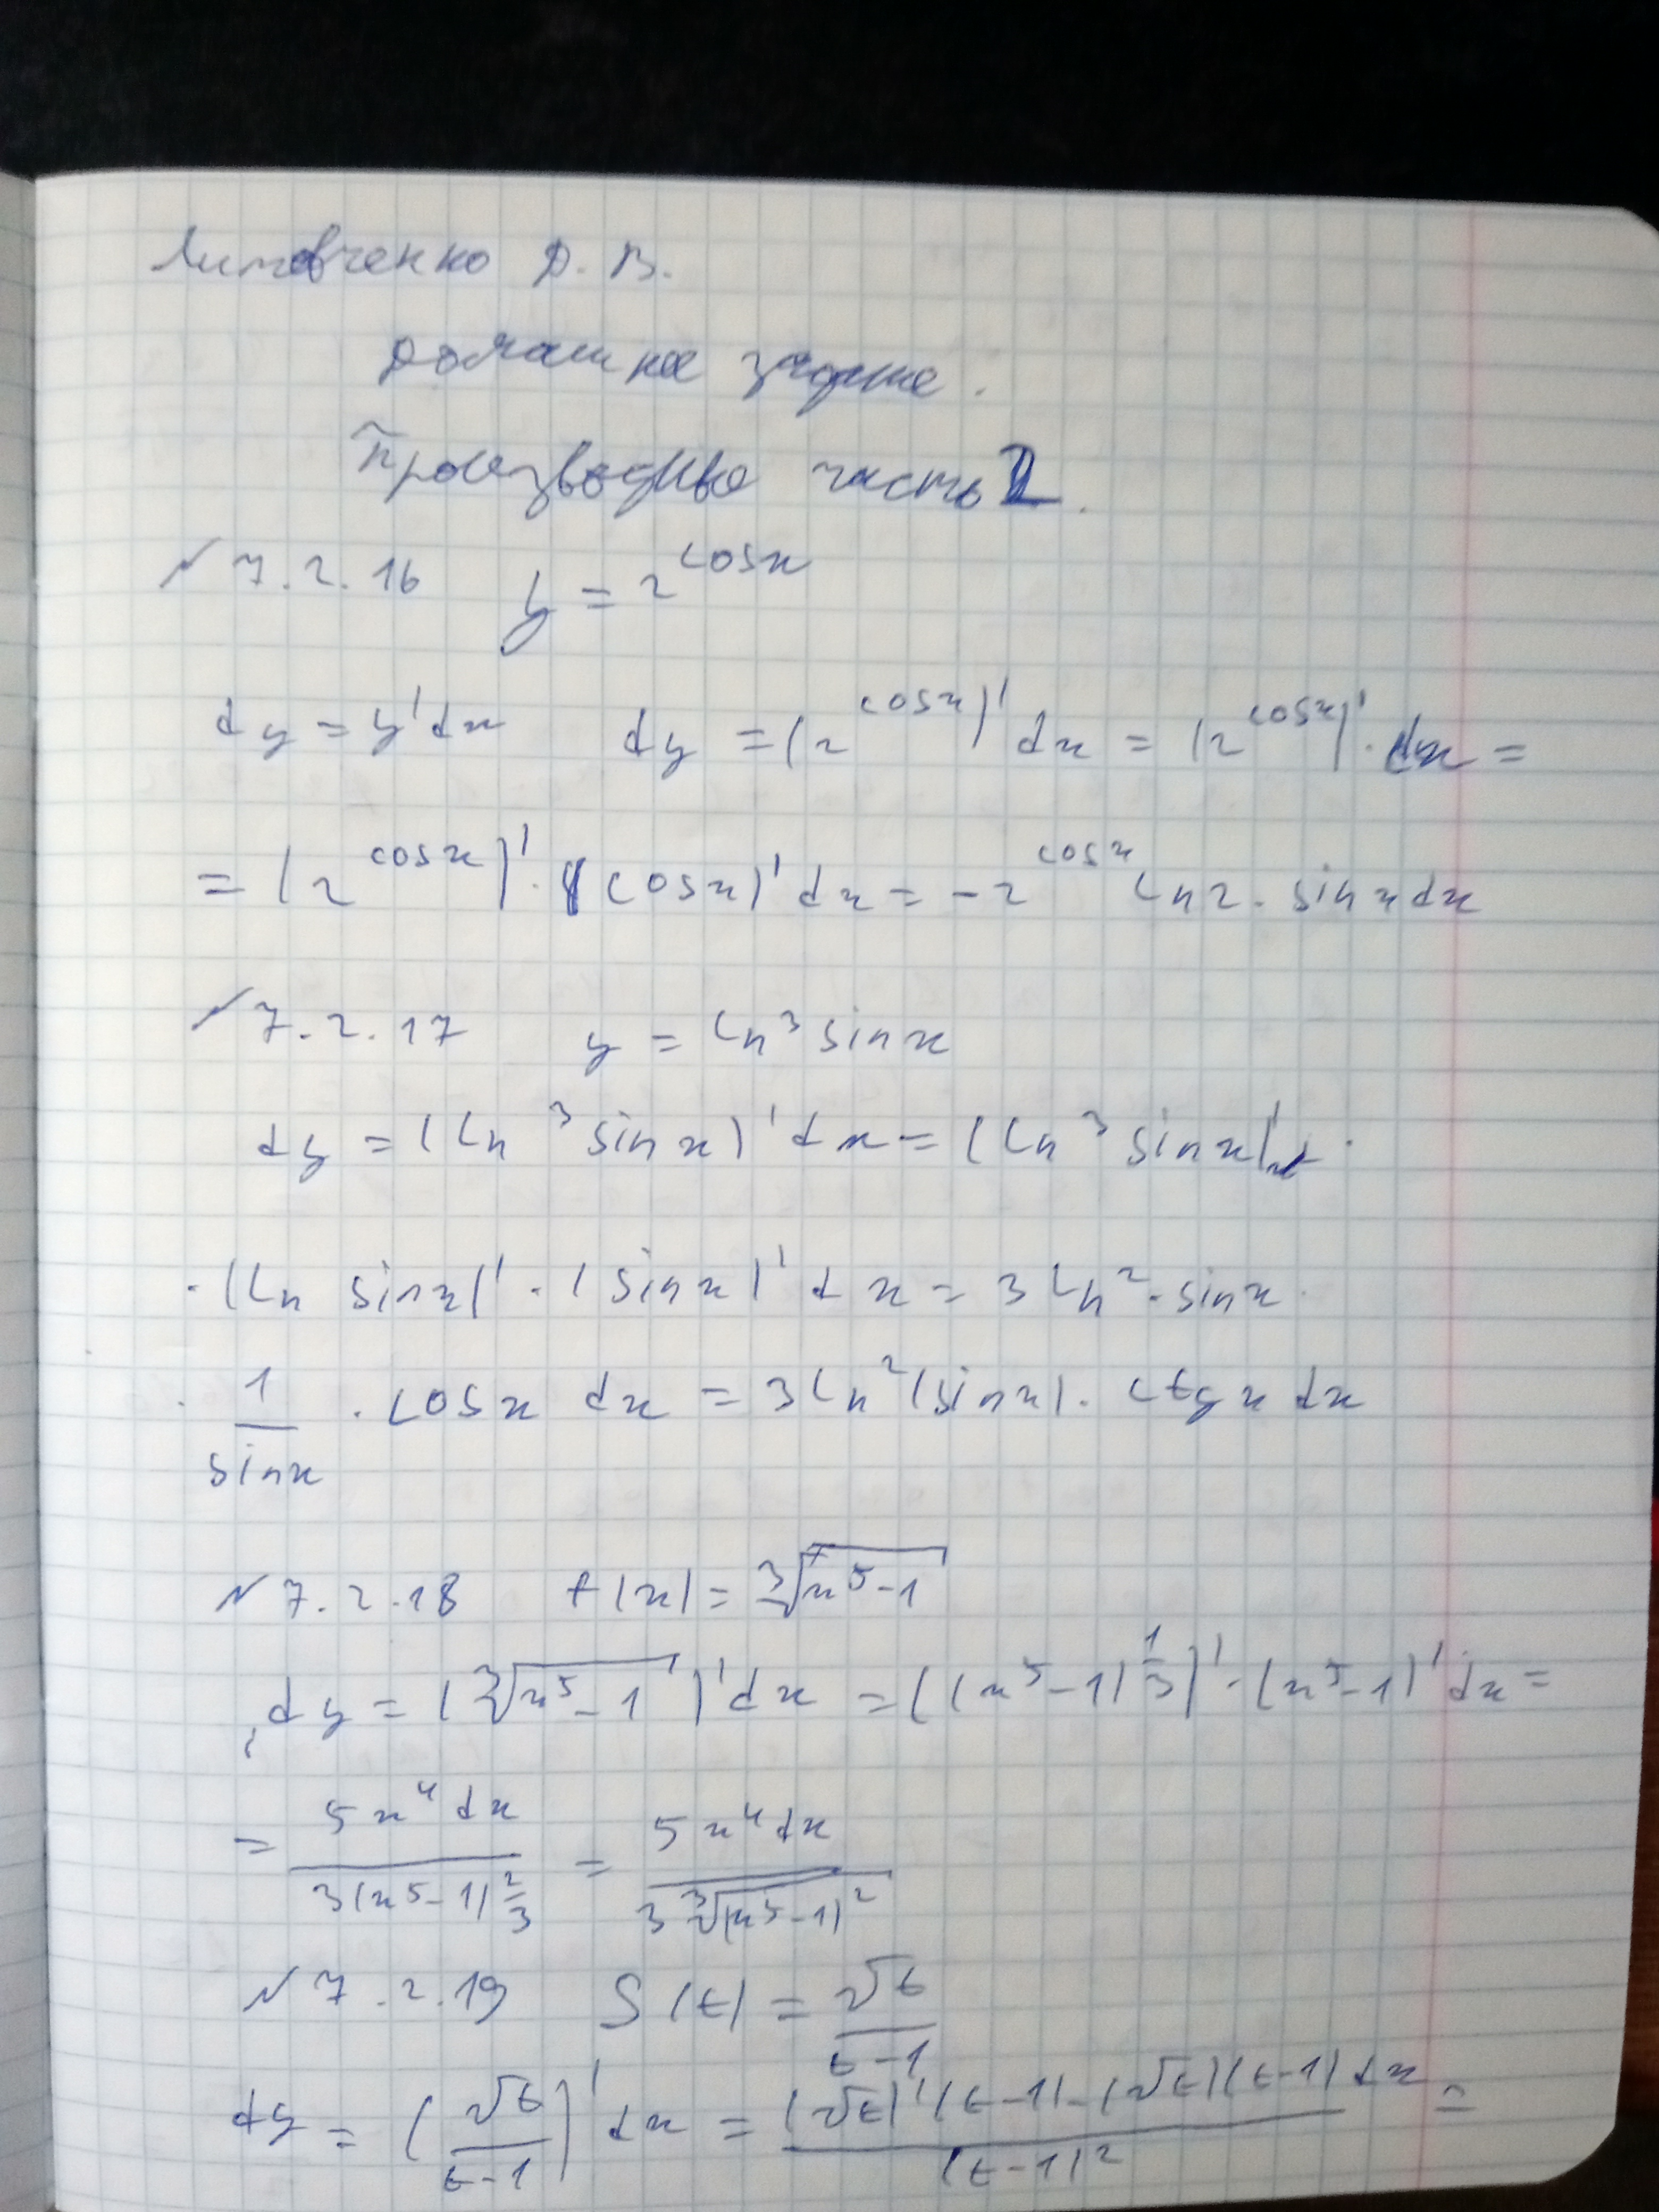 Литовченко Д. В.
Домашнее задание.
Производные часть 2.
№ 7.2.16 y = 2^{cos x}
dy = y' dx dy = (2^{cos x})' dx = (2^{cos x})' · dx =
= (2^{cos x})' · (cos x)' dx = -2^{cos x} ln 2 · sin x dx
№ 7.2.17 y = ln³ sin x
dy = (ln³ sin x)' dx = (ln³ sin x)' ·
· (ln sin x)' · (sin x)' dx = 3 ln² · sin x ·
· \frac{1}{sin x} · cos x dx = 3 ln² (sin x) · ctg x dx
№ 7.2.18 f(x) = ∛(x⁵ - 1)
dy = (∛(x⁵ - 1))' dx = ((x⁵ - 1)^{\frac{1}{3}})' · (x⁵ - 1)' dx =
= \frac{5x⁴ dx}{3(x⁵ - 1)^{\frac{2}{3}}} = \frac{5x⁴ dx}{3∛(x⁵ - 1)²}
№ 7.2.19 S(t) = \frac{√t}{t - 1}
dy = (\frac{√t}{t - 1})' dx = \frac{(√t)'(t - 1) - (√t)(t - 1) dx}{(t - 1)²} =